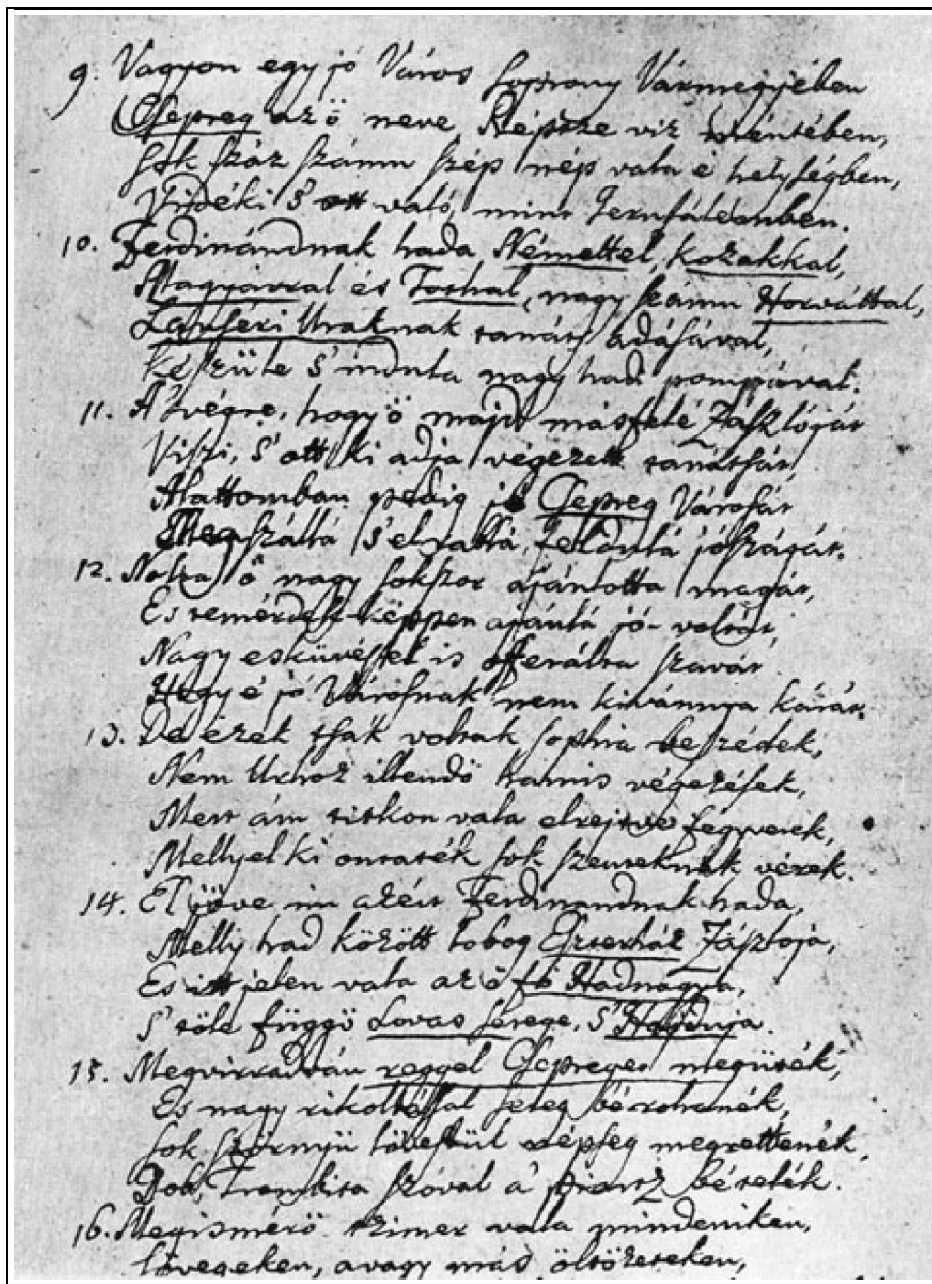 9. Vagyon egy jó Város Soprony Vármegyében
Csepreg az ő neve, Répcze viz mentében,
Sok száz számu szép nép vala é helységben,
Vidéki s' ott való, mint Jerusálemben.
10. Ferdinándnak hada Némettel, kozakkal,
Magyarral és Tothal, nagy számu Horváttal,
Lánseri Uraknak tanáts adásával,
Készüle s' indula nagy hadi pompával.
11. A' végre, hogy ő majd másfelé Zászlóját
Viszi, s' ott ki adja végezett tanátsát,
Alattomban pedig jó Csepreg Várossát
Megszállá s' elrablá, feldulá jószágát.
12. Noha ő nagy sokszor ajánlotta magát,
Es temérdek-képpen ajánlá jó-voltát,
Nagy esküvéssel is offerálta szavát
Hogy é jó Városnak nem kivánnya kárát.
13. De ezek tsak voltak Sophia beszédek,
Nem Urhoz illendő hamis végezések,
Mert ám titkon vala elrejtve fegyverek,
Mellyel ki onták sok szenteknek vérek.
14. El jöve mi azért Ferdinandnak hada,
Melly had között lobog Eszterház Zászloja,
Es itt jelen vala az ő fő Hadnagya,
S' töle függő Lovas serege, s' Hajduja.
15. Megvirradván reggel Csepreget megüték,
Es nagy rikoltással sereg bé rohanék,
Sok szörnyü lövestül népség megrettenék,
Dob, Trombita szóval a' piartz bételék.
16. Megismérő tzimer vala mindeniken,
Süvegeken, avagy más öltözeteken,